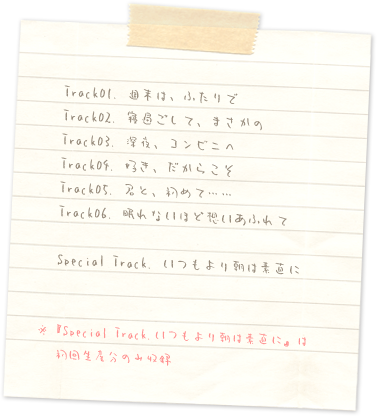 Track01. 週末は、ふたりで
Track02. 寝過ごして、まさかの
Track03. 深夜、コンビニへ
Track04. 好き、だからこそ
Track05. 君と、初めて……
Track06. 眠れないほど想いあふれて
Special Track. いつもより朝は素直に
※『Special Track. いつもより朝は素直に』は
初回生産分のみ収録